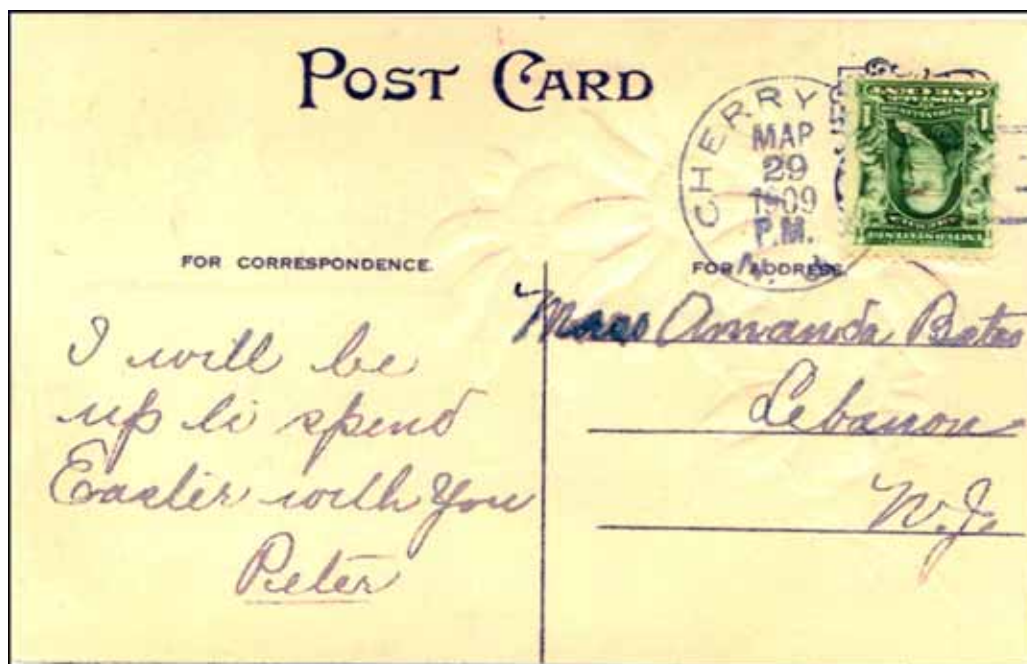 POST CARD
CHERRY
MAR
29
1909
P.M.
N. J.
1 1
FOR CORRESPONDENCE.
FOR ADDRESS.
I will be
up to spend
Easter with You
Peter
Amanda Bates
Lebanon
N.J.